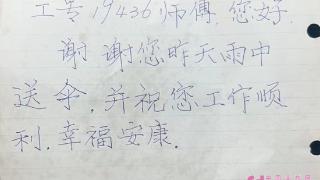 工号19436师傅，您好，
谢谢您昨天雨中
送伞，并祝您工作顺
利，幸福安康.